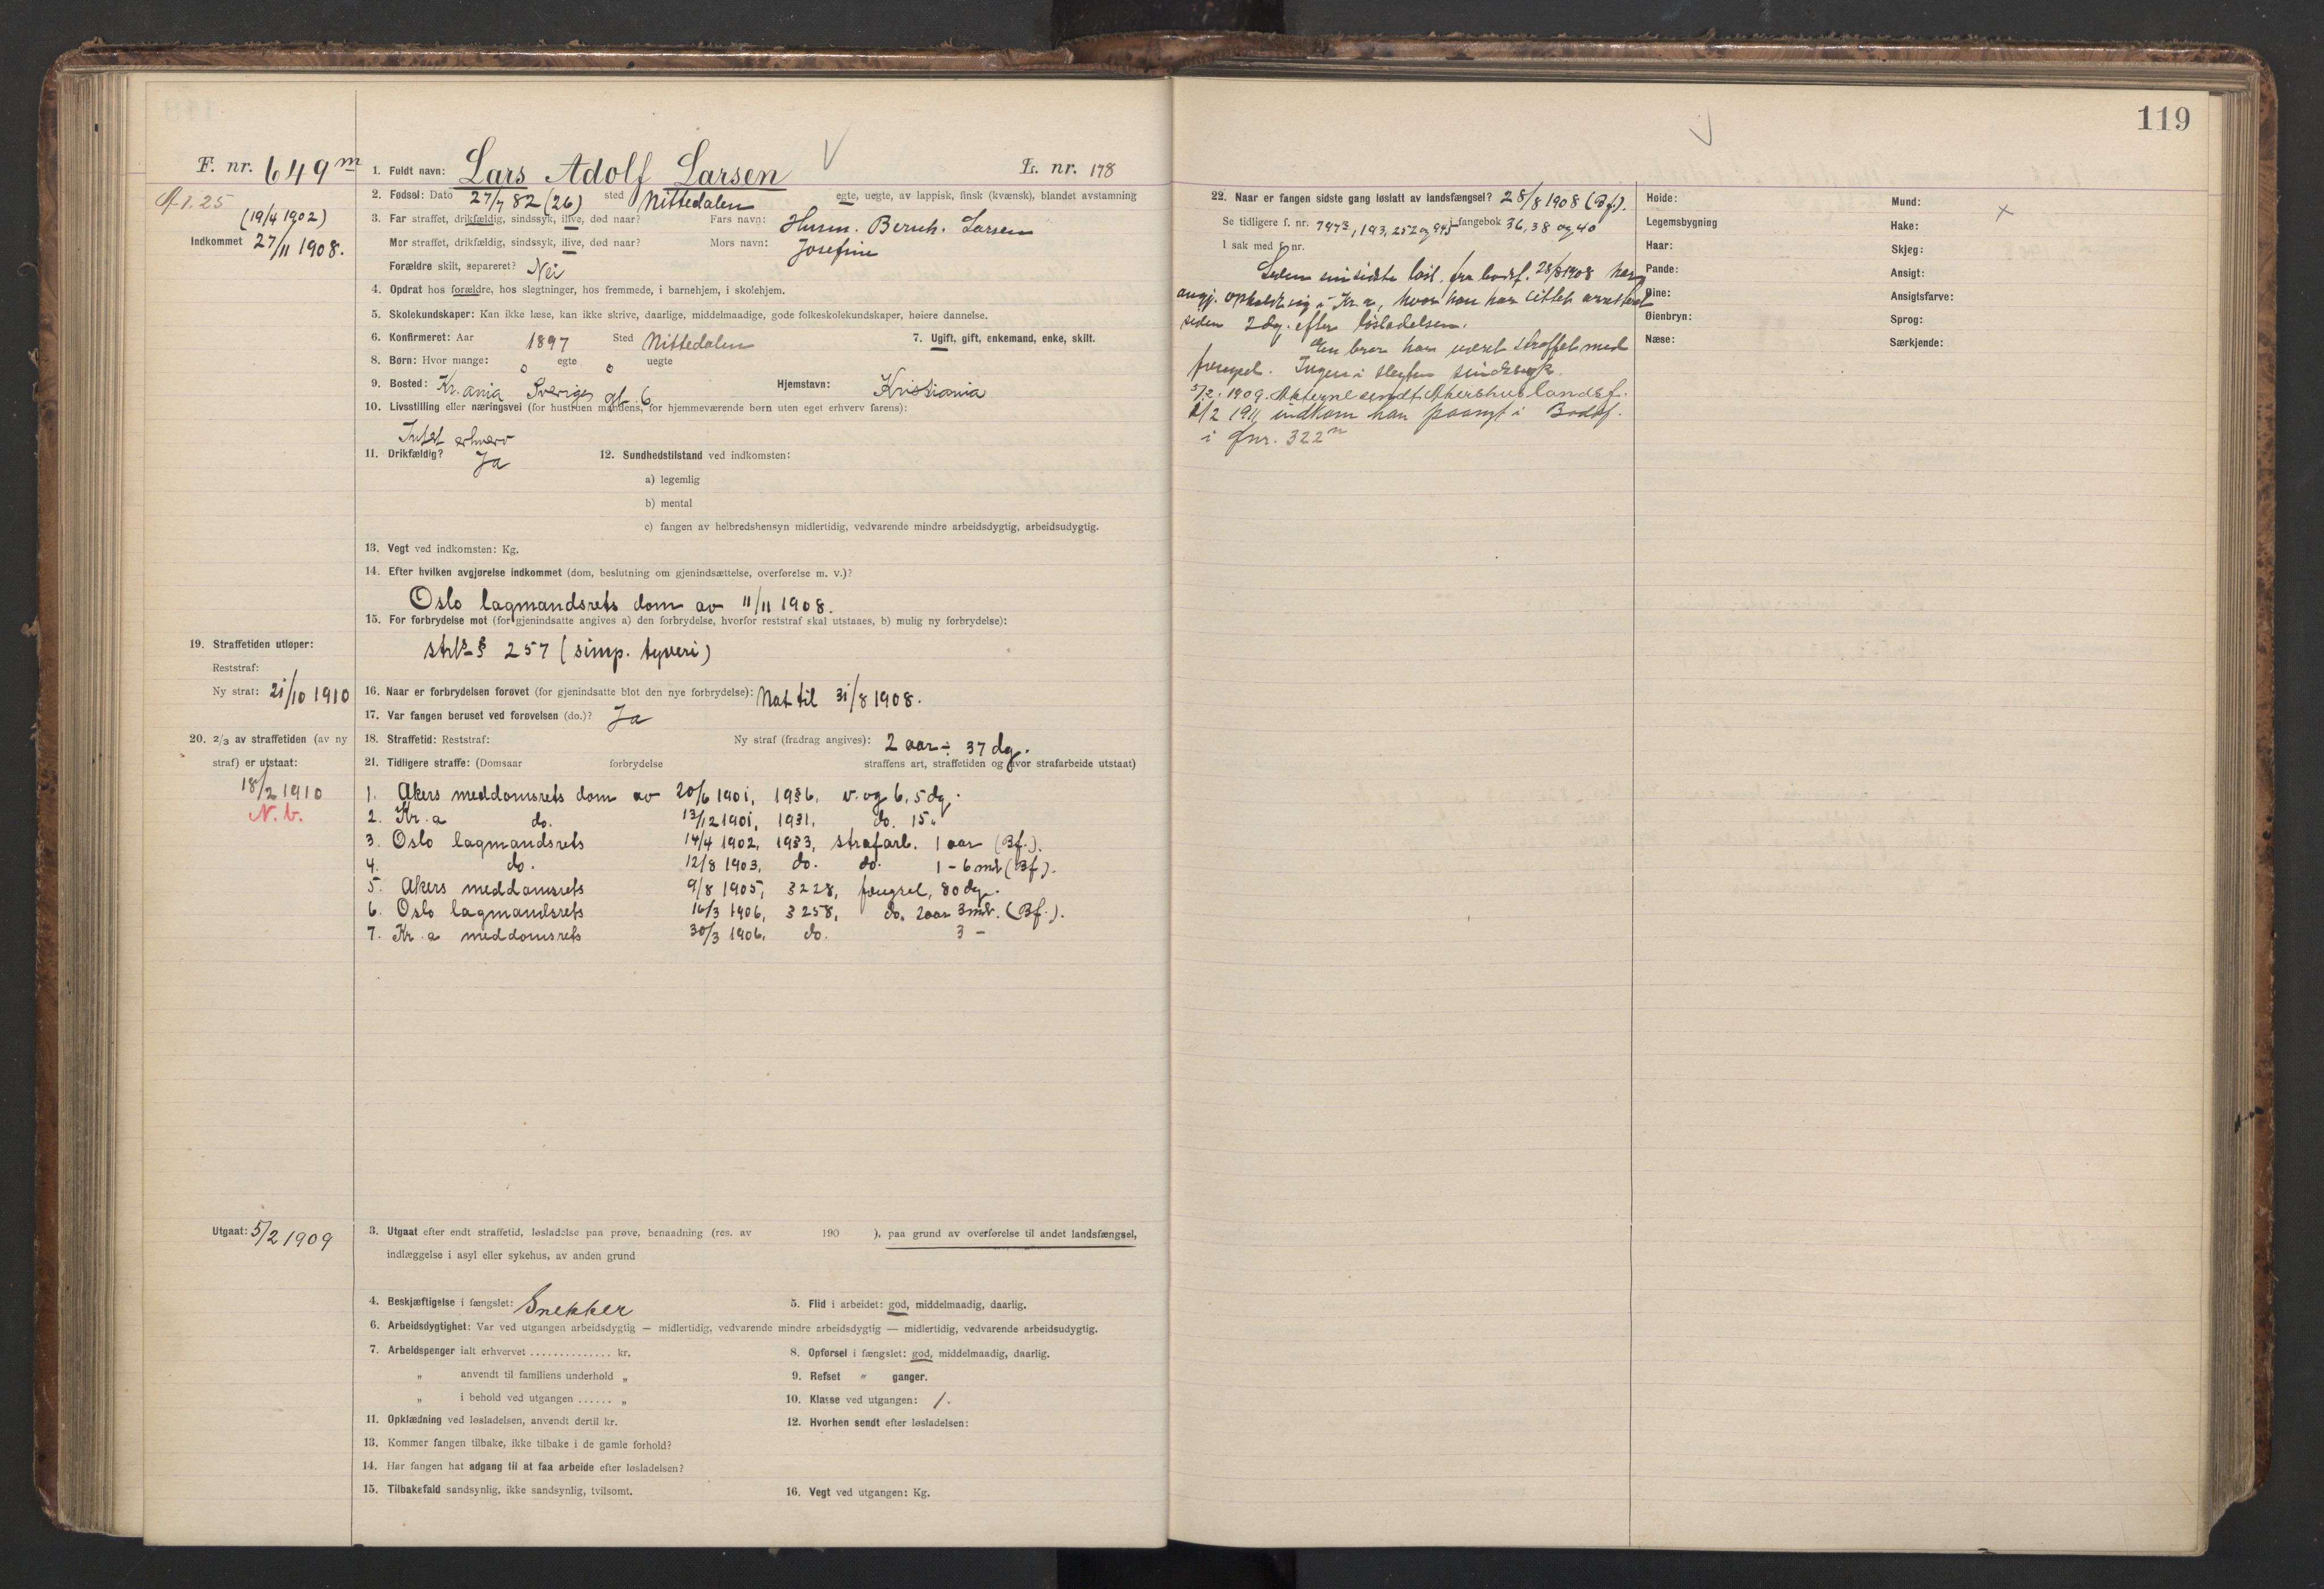 119
F. nr. 649 m
1. Fuldt navn: Lars Adolf Larsen
L. nr. 178
2. Fødsel: Dato 27/7 82 (26) sted Nittedalen egte, uegte, av lappisk, finsk (kvænsk), blandet avstamning
(19/4 1902)
Indkommet 27/11 1908.
3. Far straffet, drikfældig, sindssyk, ilive, død naar? Fars navn: Husm. Bernh. Larsen
Mor straffet, drikfældig, sindssyk, ilive, død naar? Mors navn: Josefine
Forældre skilt, separeret? Nei
4. Opdrat hos forældre, hos slegtninger, hos fremmede, i barnehjem, i skolehjem.
5. Skolekundskaper: Kan ikke læse, kan ikke skrive, daarlige, middelmaadige, gode folkeskolekundskaper, høiere dannelse.
6. Konfirmeret: Aar 1897 Sted Nittedalen 7. Ugift, gift, enkemand, enke, skilt.
8. Børn: Hvor mange: 0 egte 0 uegte
9. Bosted: Kr.ania Sveriges gt. 6 Hjemstavn: Kristiania
10. Livsstilling eller næringsvei (for hustruen mandens, for hjemmeværende børn uten eget erhverv farens):
Intet erhverv
11. Drikfældig? Ja 12. Sundhedstilstand ved indkomsten:
a) legemlig
b) mental
c) fangen av helbredshensyn midlertidig, vedvarende mindre arbeidsdygtig, arbeidsudygtig.
13. Vegt ved indkomsten: Kg.
14. Efter hvilken avgjørelse indkommet (dom, beslutning om gjenindsættelse, overførelse m. v.)?
Oslo lagmandsrets dom av 11/11 1908.
15. For forbrydelse mot (for gjenindsatte angives a) den forbrydelse, hvorfor reststraf skal utstaaes, b) mulig ny forbrydelse):
strl's § 257 (simp. tyveri)
19. Straffetiden utløper:
Reststraf:
Ny straf: 21/10 1910
16. Naar er forbrydelsen forøvet (for gjenindsatte blot den nye forbrydelse): Nat til 31/8 1908.
17. Var fangen beruset ved forøvelsen (do.)? Ja
20. 2/3 av straffetiden (av ny straf) er utstaat:
18/2 1910
N. b.
18. Straffetid: Reststraf: Ny straf (fradrag angives): 2 aar ÷ 37 dg.
21. Tidligere straffe: (Domsaar forbrydelse straffens art, straffetiden og hvor strafarbeide utstaat)
1. Akers meddomsrets dom av 20/6 1901, 1936, v. og b. 5 dg.
2. Kr.a do. 13/12 1901, 1931, do. 15 "
3. Oslo lagmandsrets 14/4 1902, 1933, strafarb. 1 aar (Bf.).
4. do. 12/8 1903, do. do. 1 - 6 md (Bf).
5. Akers meddomsrets 9/8 1905, 3228, fængsel, 80 dg.
6. Oslo lagmandsrets 16/3 1906, 3258, do. 2 aar 3 md. (Bf.).
7. Kr.a meddomsrets 30/3 1906, do. 3 -
Utgaat: 5/2 1909
3. Utgaat efter endt straffetid, løsladelse paa prøve, benaadning (res. av 190 ), paa grund av overførelse til andet landsfængsel,
indlæggelse i asyl eller sykehus, av anden grund
4. Beskjæftigelse i fængslet: Snekker 5. Flid i arbeidet: god, middelmaadig, daarlig.
6. Arbeidsdygtighet: Var ved utgangen arbeidsdygtig — midlertidig, vedvarende mindre arbeidsdygtig — midlertidig, vedvarende arbeidsudygtig.
7. Arbeidspenger ialt erhvervet .............. kr. 8. Opførsel i fængslet: god, middelmaadig, daarlig.
" anvendt til familiens underhold " 9. Refset " ganger.
" i behold ved utgangen ...... " 10. Klasse ved utgangen: 1.
11. Opklædning ved løsladelsen, anvendt dertil kr. 12. Hvorhen sendt efter løsladelsen:
13. Kommer fangen tilbake, ikke tilbake i de gamle forhold?
14. Har fangen hat adgang til at faa arbeide efter løsladelsen?
15. Tilbakefald sandsynlig, ikke sandsynlig, tvilsomt. 16. Vegt ved utgangen: Kg.
22. Naar er fangen sidste gang løslatt av landsfængsel? 28/8 1908 (Bf.).
Se tidligere f. nr. 797, 193, 252 og 945 i fangebok 36, 38 og 40
I sak med f. nr.
Siden sin sidste løsl. fra bodsf. 28/8 1908 har
angj. opholdt sig i Kr.a, hvor han har sittet arrestert
siden 2 dg. efter løsladelsen.
En bror har været straffet med
fængsel. Ingen i slegten sindssyk.
5/2 1909. Akterne sendt Akershus landsf.
2/2 1911 indkom han paanyt i Bodsf.
i fnr. 322 m
Høide:
Legemsbygning
Haar:
Pande:
Øine:
Øienbryn:
Næse:
Mund:
Hake:
Skjeg:
Ansigt:
Ansigtsfarve:
Sprog:
Særkjende: